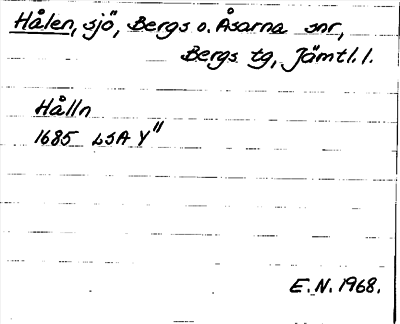 Hålen, sjö, Bergs o. Åsarna snr,
Bergs tg, Jämtl. l.
Hålln
1685 LSA Y"
E.N. 1968.